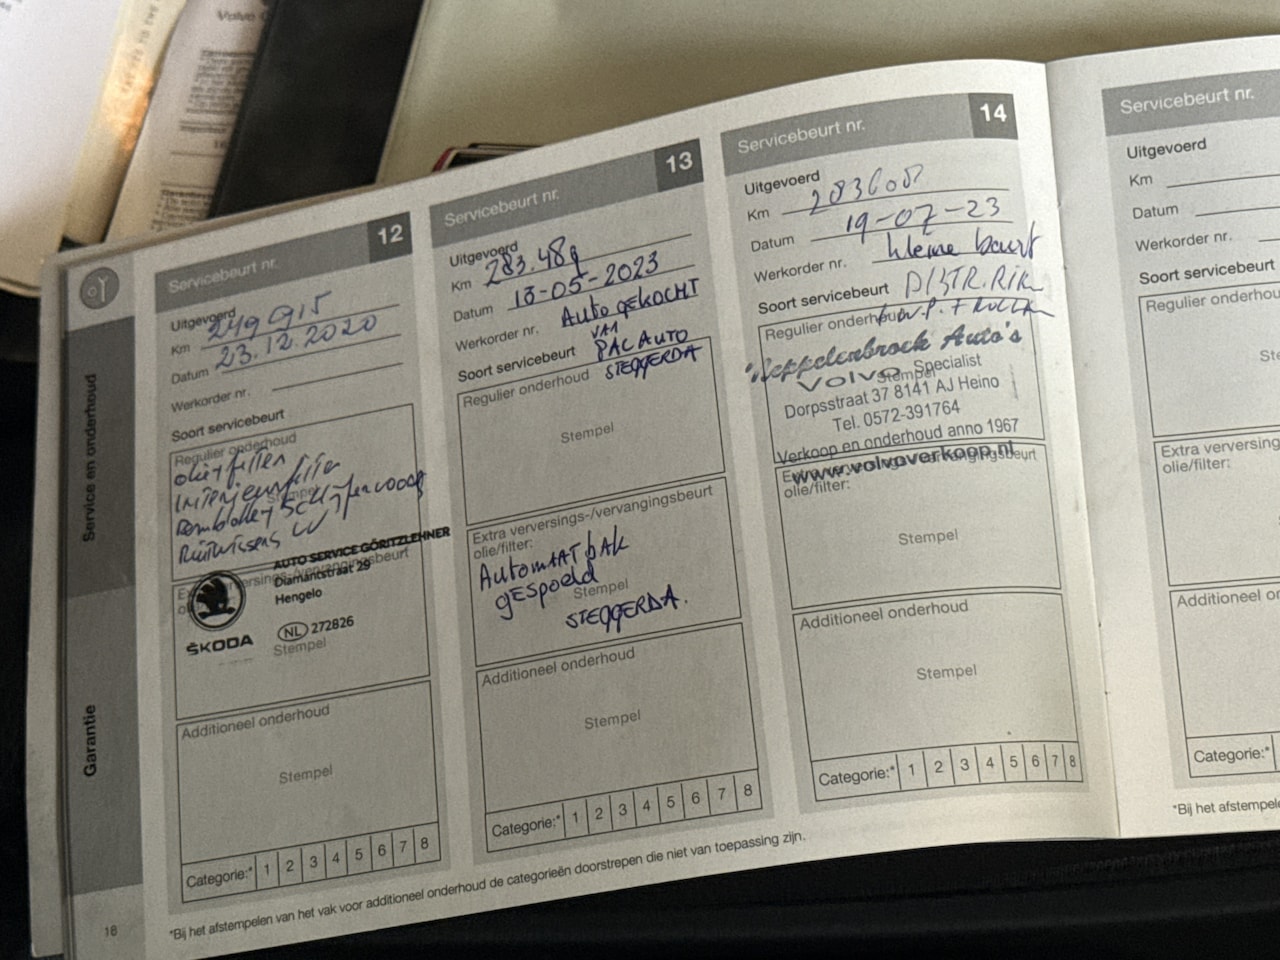 Volvo
Service en onderhoud
Garantie
18
Servicebeurt nr. 12
Uitgevoerd
Km 249 915
Datum 23.12.2020
Werkorder nr.
Soort servicebeurt
Regulier onderhoud
olie+filter
Interieurfilter
Stempel
Ruitwissers
AUTO SERVICE GÖRITZLEHNER
Diamantstraat 29
Hengelo
NL 272826
ŠKODA
Stempel
Additioneel onderhoud
Stempel
Categorie:* 1 2 3 4 5 6 7 8
Servicebeurt nr. 13
Uitgevoerd
Km 283.489
Datum 13-05-2023
Werkorder nr. Auto gEKOCHT
VAN
Soort servicebeurt PAC AUTO
Regulier onderhoud STEGGERDA
Stempel
Extra verversings-/vervangingsbeurt
olie/filter:
AutomAAT bAK
gEspoeld
Stempel
STEGGERDA.
Additioneel onderhoud
Stempel
Categorie:* 1 2 3 4 5 6 7 8
Servicebeurt nr. 14
Uitgevoerd
Km
Datum 19-07-23
Werkorder nr. kleine beurt
Soort servicebeurt DISTR. RIEM
Regulier onderhoud
Auto's
VOLVO Specialist
Stempel
Dorpsstraat 37 8141 AJ Heino
Tel. 0572-391764
Verkoop en onderhoud anno 1967
www.volvoverkoop.nl
olie/filter:
Stempel
Additioneel onderhoud
Stempel
Categorie:* 1 2 3 4 5 6 7 8
Servicebeurt nr.
Uitgevoerd
Km
Datum
Werkorder nr.
Soort servicebeurt
Regulier
Extra
olie/filter:
Additioneel
Categorie:*
*Bij het afstempelen van het vak voor additioneel onderhoud de categorieën doorstrepen die niet van toepassing zijn.
*Bij het